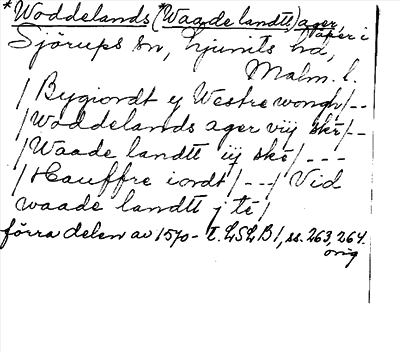 *Woddelands (*Waade landtt) ager, åper i
Sjörups sn, Ljunits hd,
Malm. l.
/Bygiondt ej Westre wongh/--
/Woddelands ager vij skē/--
/Waade landtt iij skē/---
/Hauffre iordt/--/ Vid
waade landtt j tē/
förra delen av 1570-t. LSLB1, ss. 263, 264.
orig